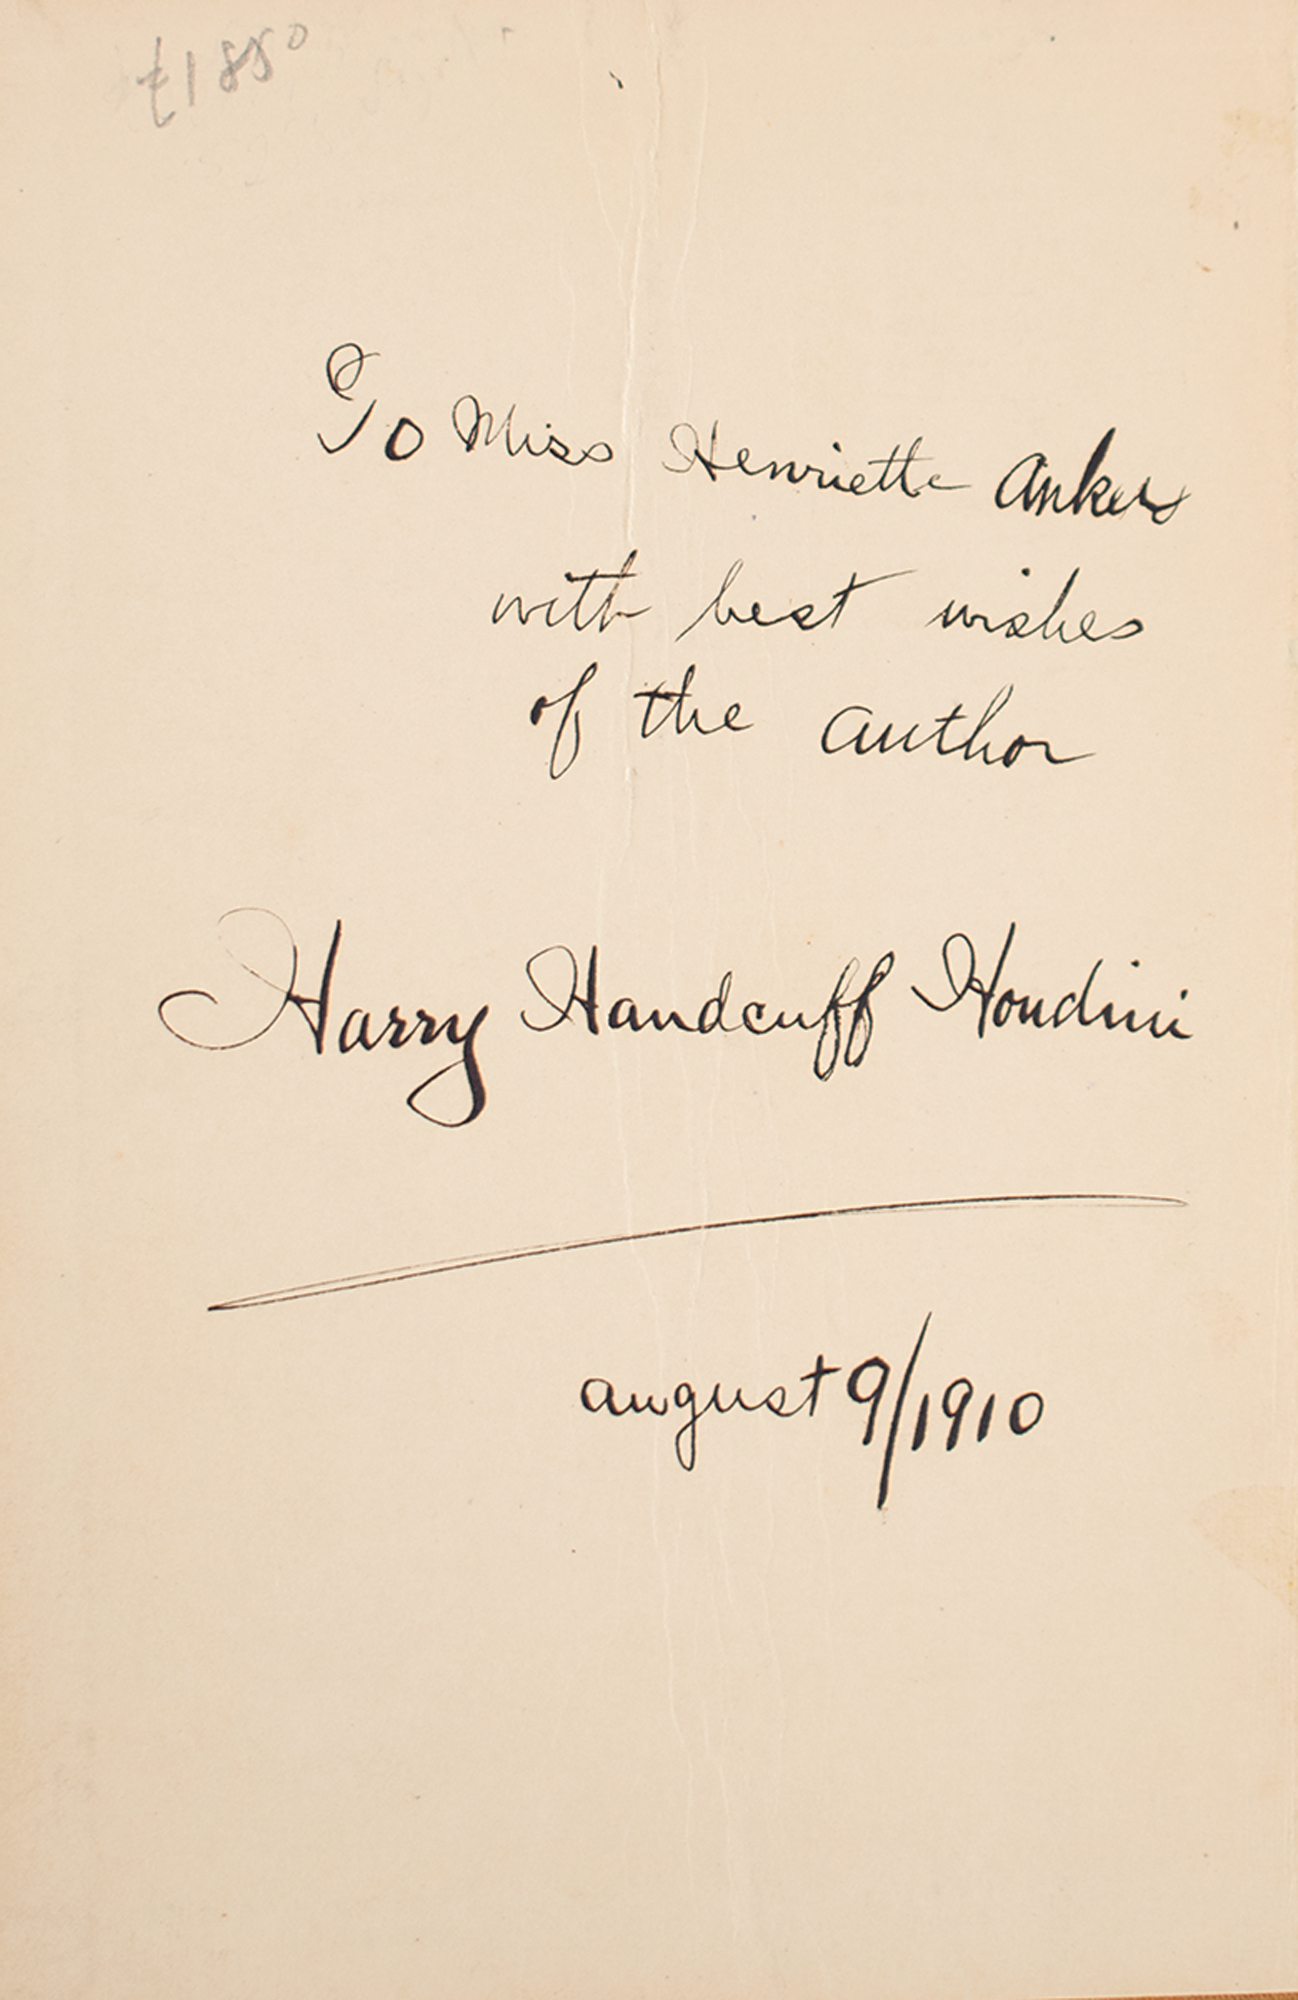 £1850
To Miss Henriette Ankers
with best wishes
of the author
Harry Handcuff Houdini
august 9/1910